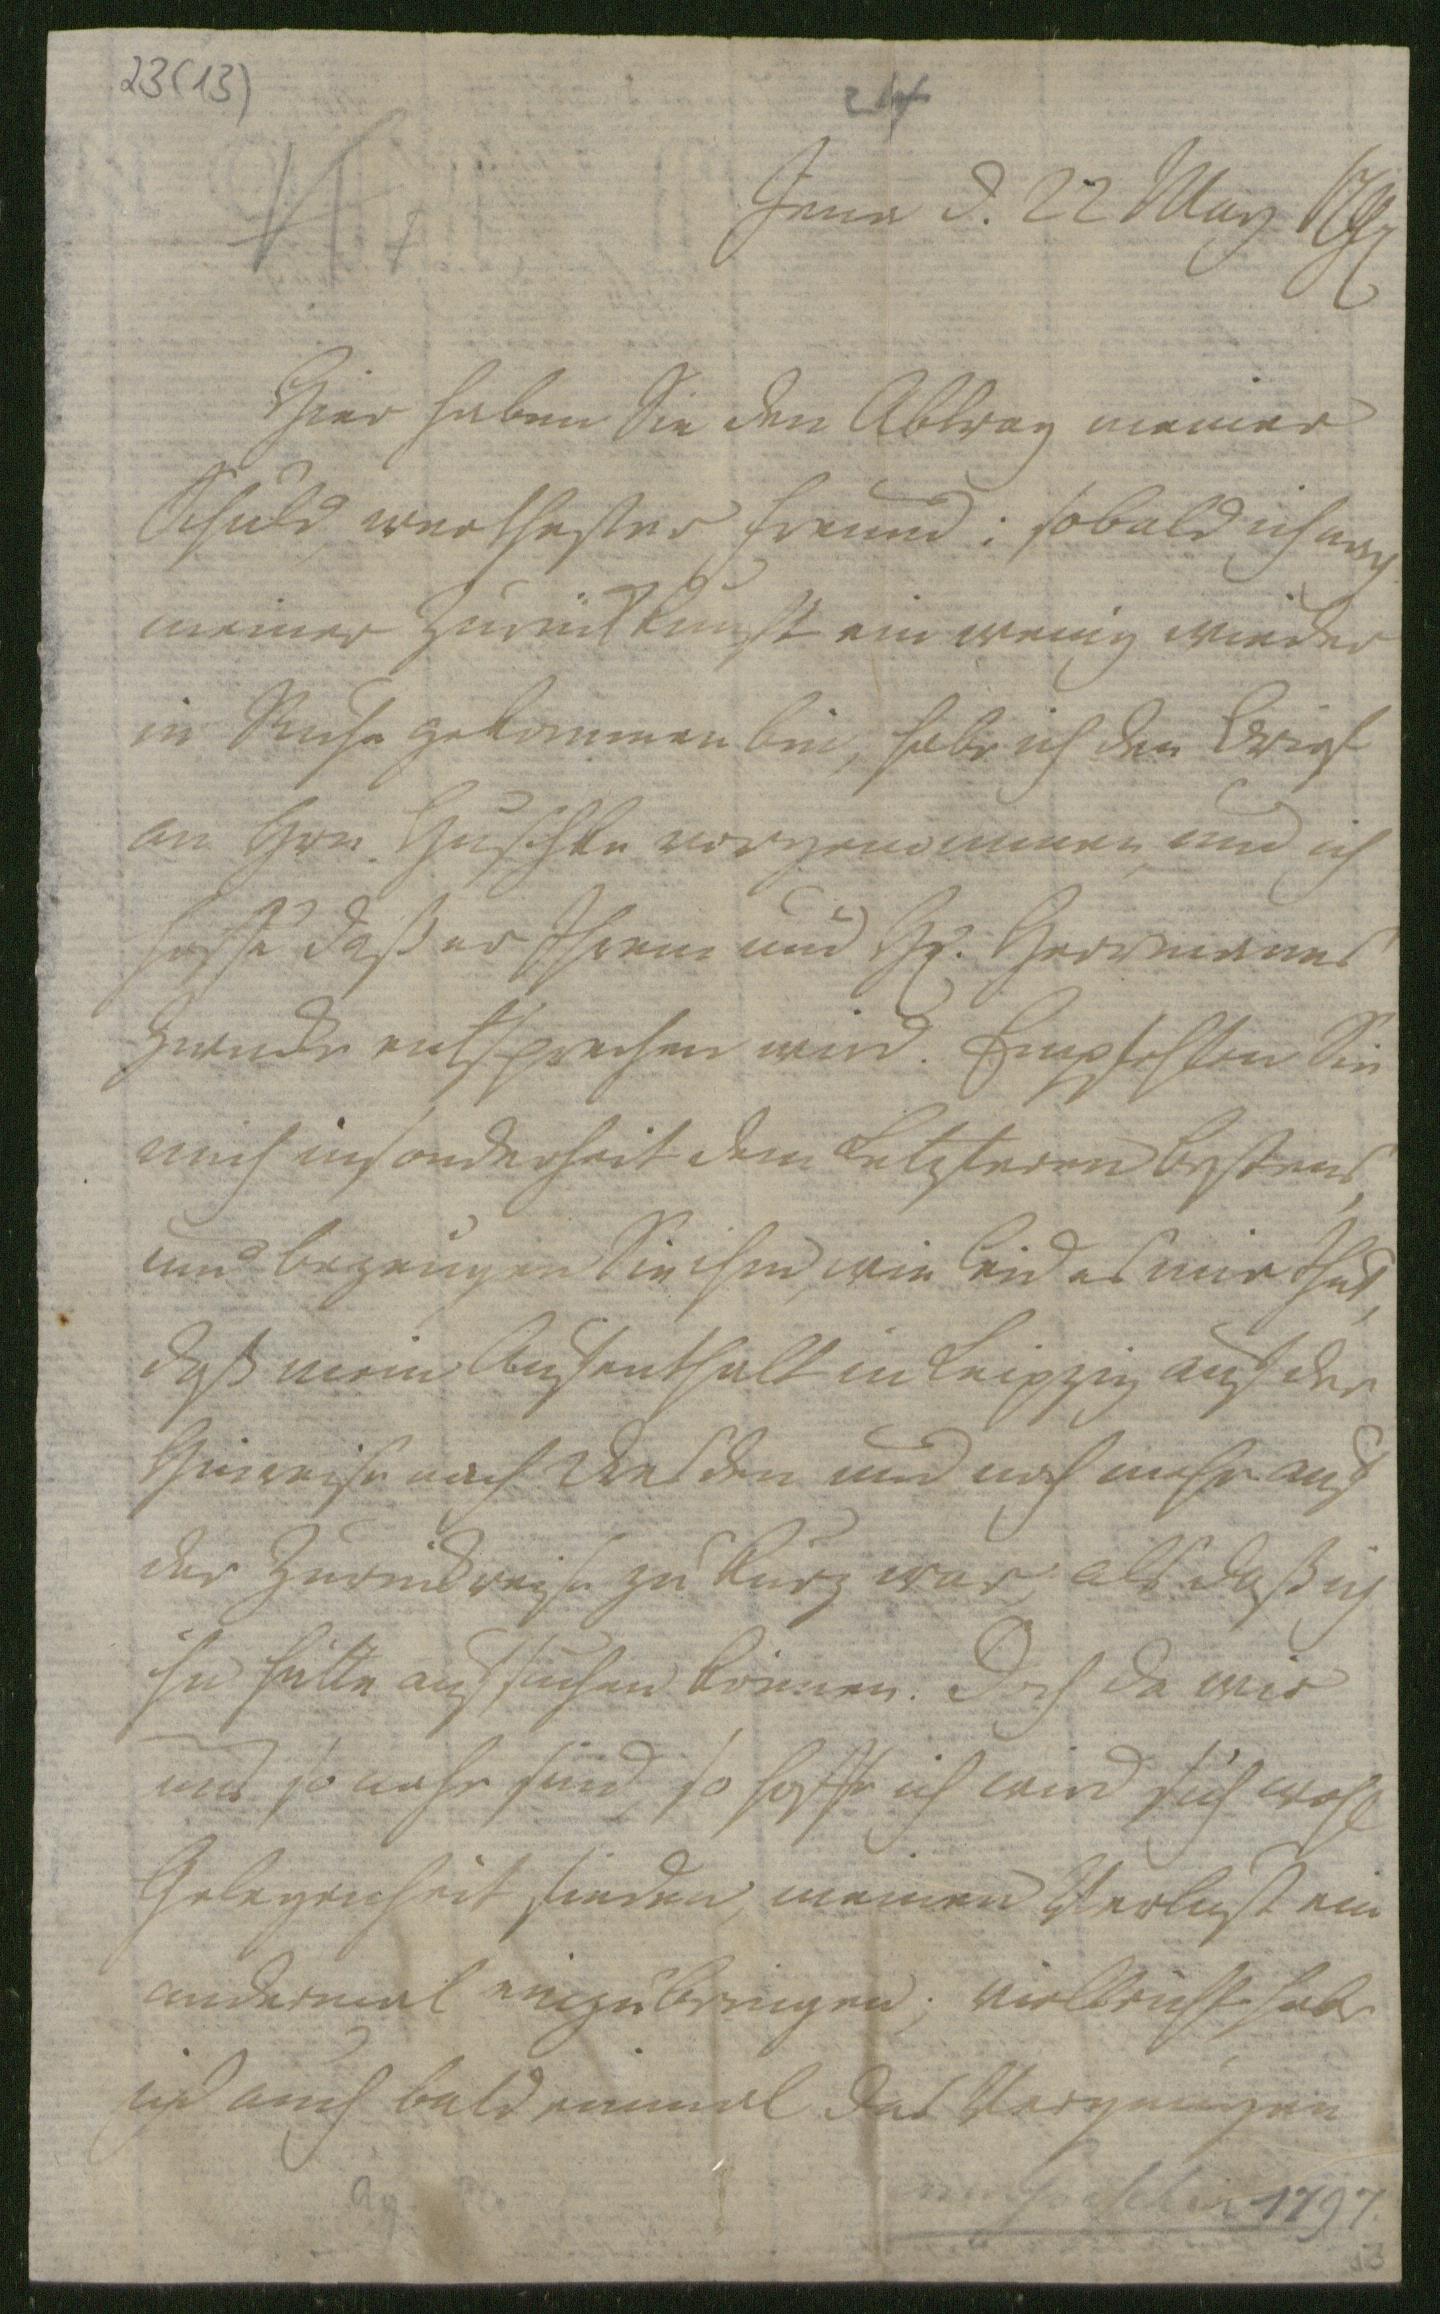 23(13)
24
Jena d. 22 May 97
Hier haben Sie den Abtrag meiner
Schuld, werthester Freund: sobald ich nach
meiner Zurückkunft ein wenig wieder
in Ruhe gekommen bin, habe ich den Brief
an Hrn. Huschke vorgenommen, und ich
hoffe daß er Ihrem und Hr. Herrmanns
Zwecke entsprechen wird. Empfehlen Sie
mich insonderheit dem Letzteren bestens,
und bezeugen Sie ihm, wie leid es mir thut,
daß mein Aufenthalt in Leipzig auf der
Hinreise nach Dresden und noch mehr auf
der Zurückreise zu kurz war, als daß ich
ihn hätte aufsuchen können. Doch da wir
uns so nahe sind, so hoffe ich wird sich wohl
Gelegenheit finden, meinen Verlust ein
andermal einzubringen; vielleicht habe
ich auch bald einmal das Vergnügen
1797.
13